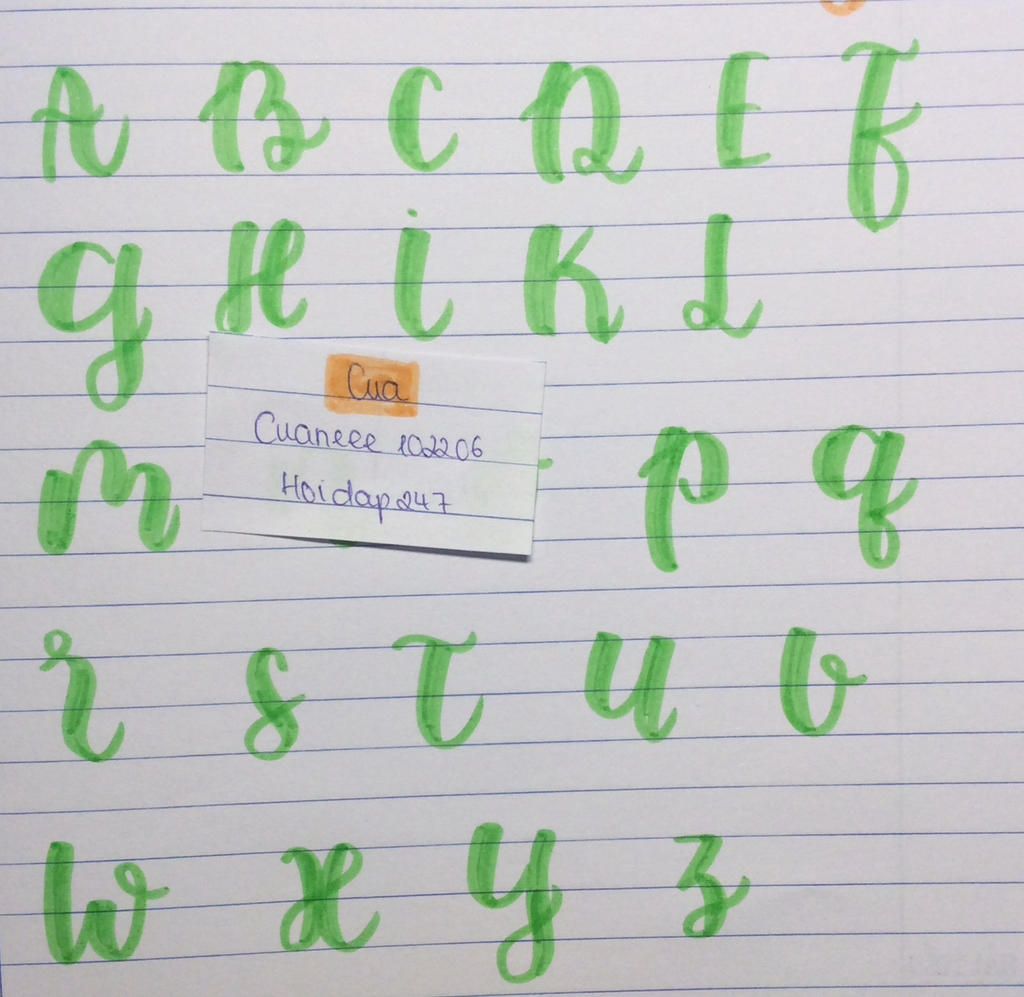 A B C D E F
G H i K L
Cua
Cuaneee 102206
Hoidap247
m p q
r s T u v
w x y z